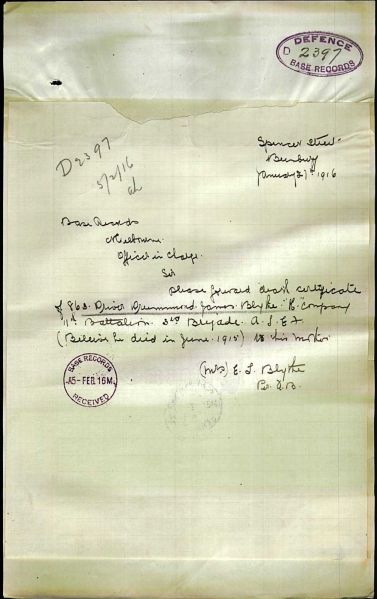 DEFENCE
D 2397
BASE RECORDS
D2397
5/2/16
Spencer Street
Bunbury
January 27th 1916
Base Records
Melbourne
Officer in Charge.
Sir
Please forward death certificate
of 863. Driver Drummond James Blyke "K" Company
11th Battalion 3rd Brigade A.I.E.F
(Believe he died in June 1915) to his mother
(Mrs) E. J. Blyke
BASE RECORDS
5-FEB.16M
RECEIVED